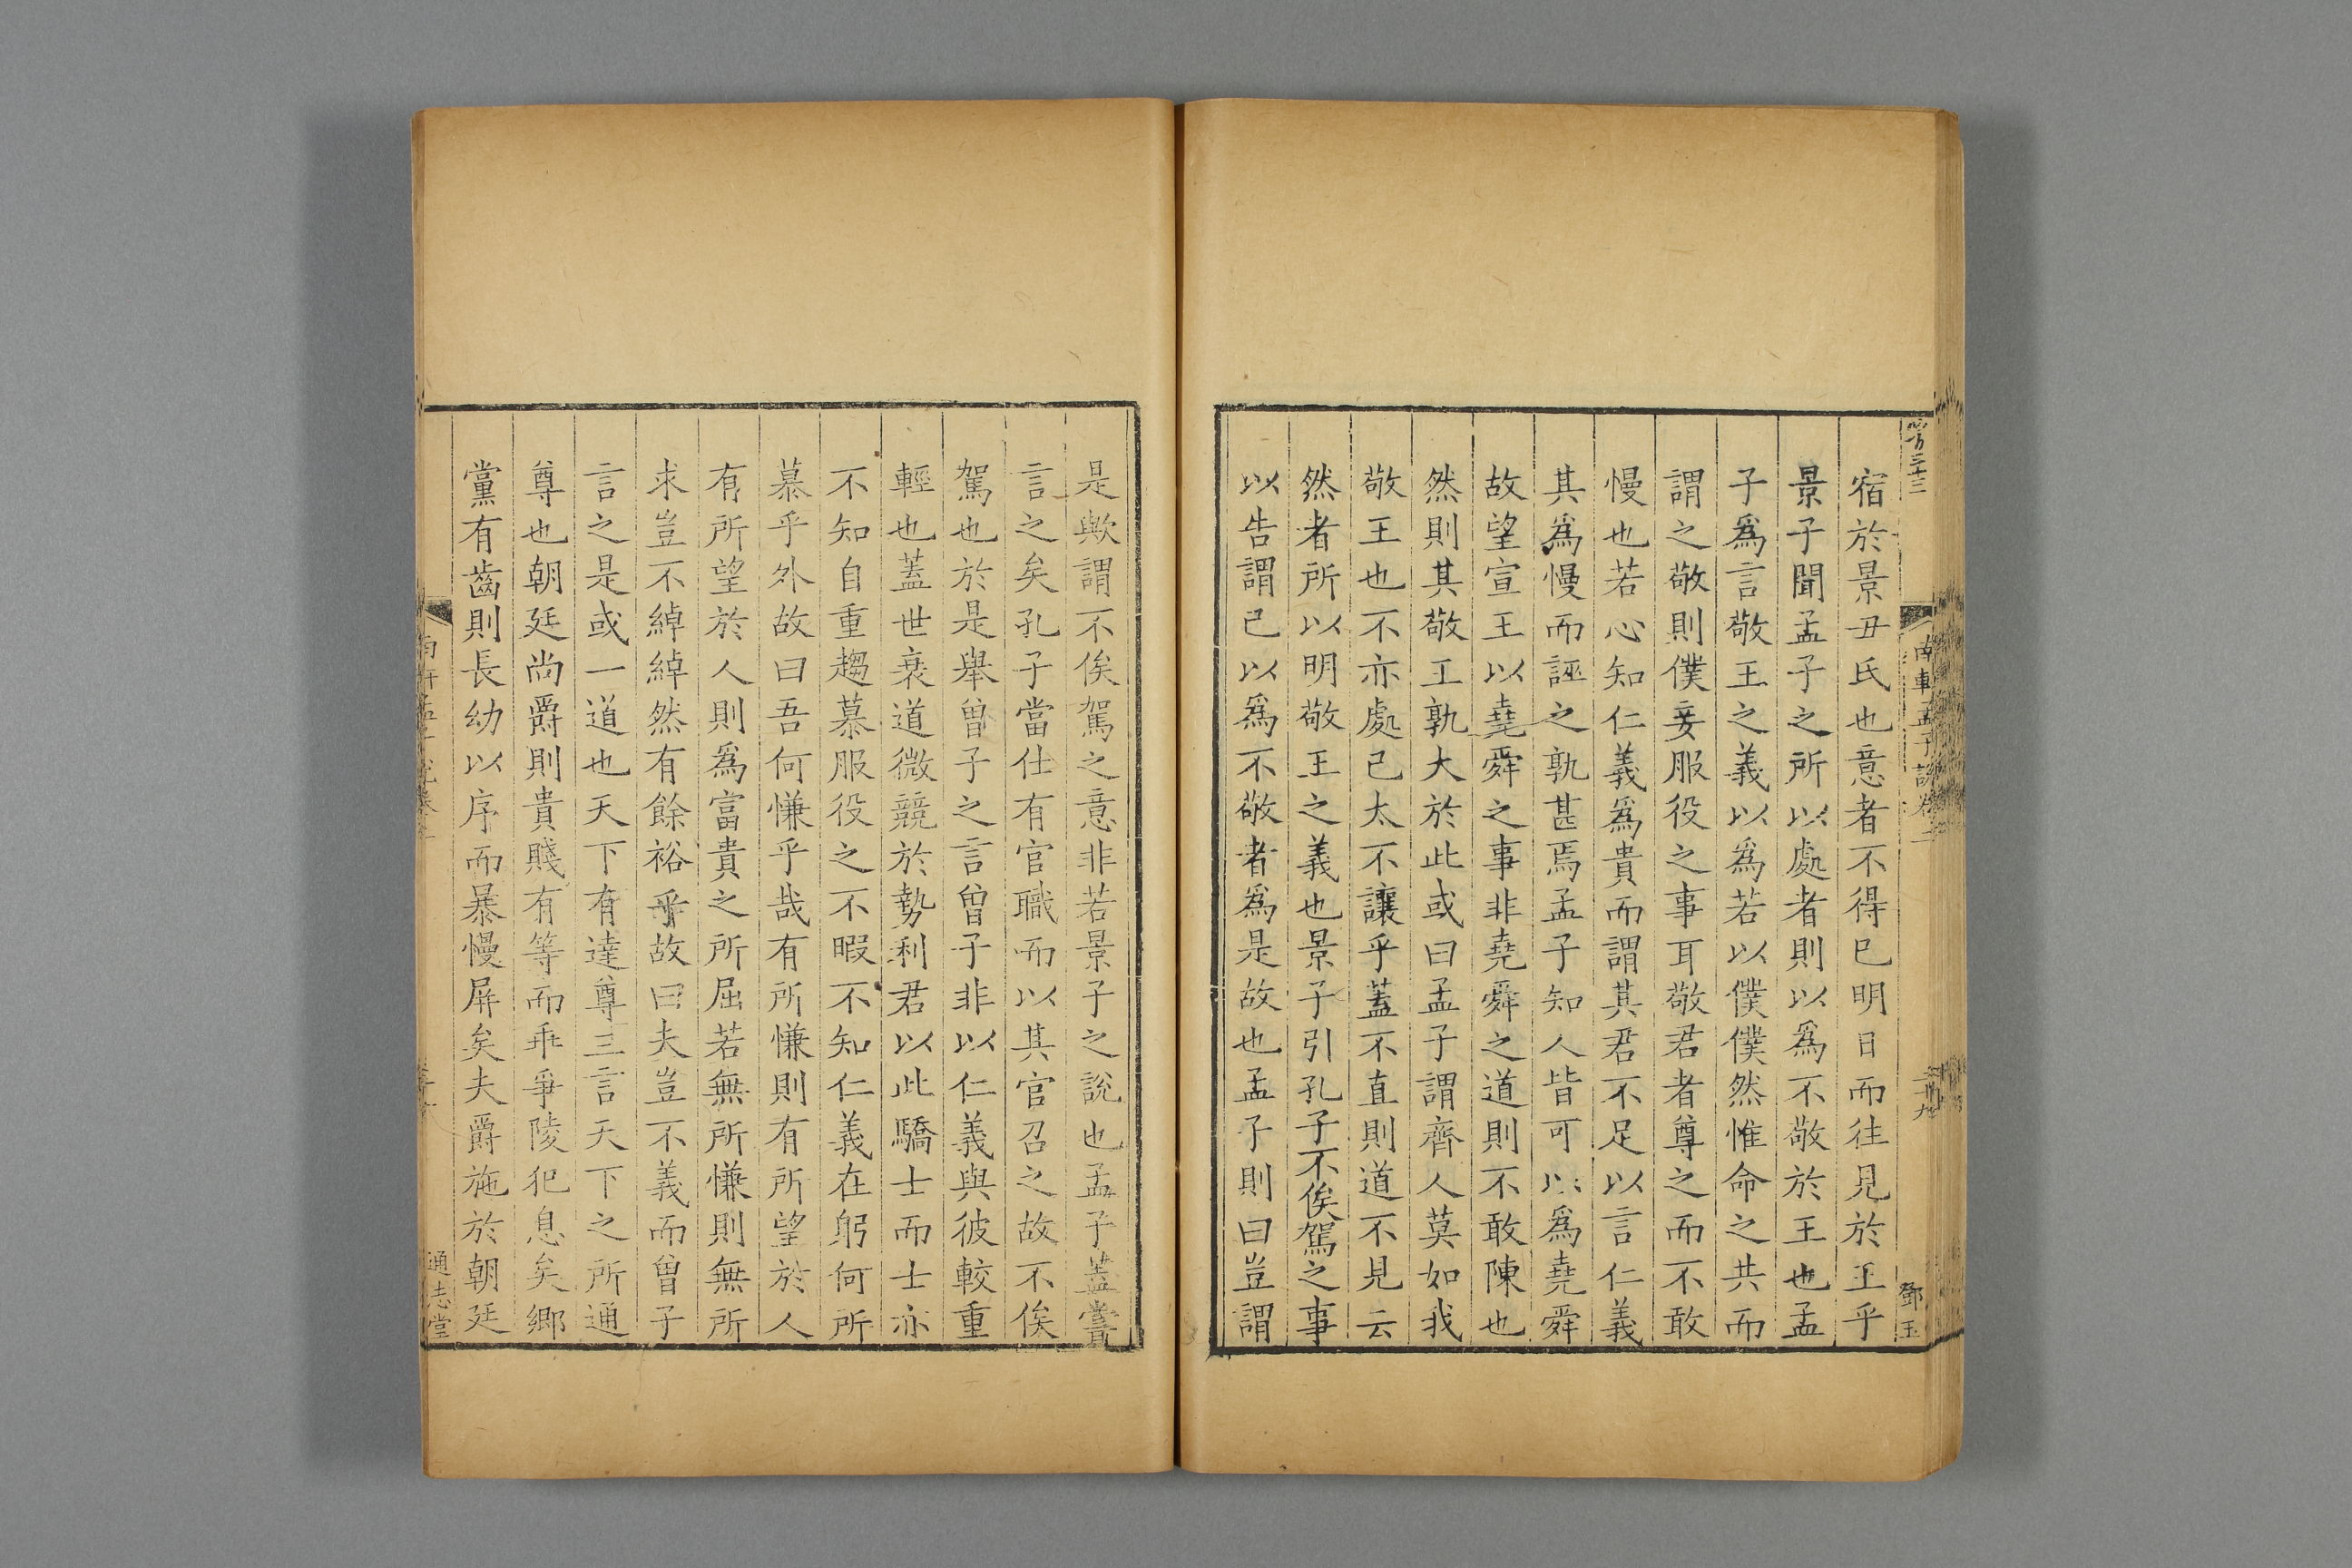 宿於景丑氏也意者不得已明日而往見於王乎
景子聞孟子之所以處者則以爲不敬於王也孟
子爲言敬王之義以爲若以僕僕然惟命之共而
謂之敬則僕妾服役之事耳敬君者尊之而不敢
慢也若心知仁義爲貴而謂其君不足以言仁義
其爲慢而誣之孰甚焉孟子知人皆可以爲堯舜
故望宣王以堯舜之事非堯舜之道則不敢陳也
然則其敬王孰大於此或曰孟子謂齊人莫如我
敬王也不亦處己太不讓乎蓋不直則道不見云
然者所以明敬王之義也景子引孔子不俟駕之事
以告謂己以爲不敬者爲是故也孟子則曰豈謂
南軒孟子說卷二
二十九
鄧玉
是歟謂不俟駕之意非若景子之說也孟子蓋嘗
言之矣孔子當仕有官職而以其官召之故不俟
駕也於是舉曾子之言曾子非以仁義與彼較重
輕也蓋世衰道微競於勢利君以此驕士而士亦
不知自重趨慕服役之不暇不知仁義在躬何所
慕乎外故曰吾何慊乎哉有所慊則有所望於人
有所望於人則爲富貴之所屈若無所慊則無所
求豈不綽綽然有餘裕乎故曰夫豈不義而曾子
言之是或一道也天下有達尊三言天下之所通
尊也朝廷尚爵則貴賤有等而乖爭陵犯息矣鄉
黨有齒則長幼以序而暴慢屏矣夫爵施於朝廷
通志堂